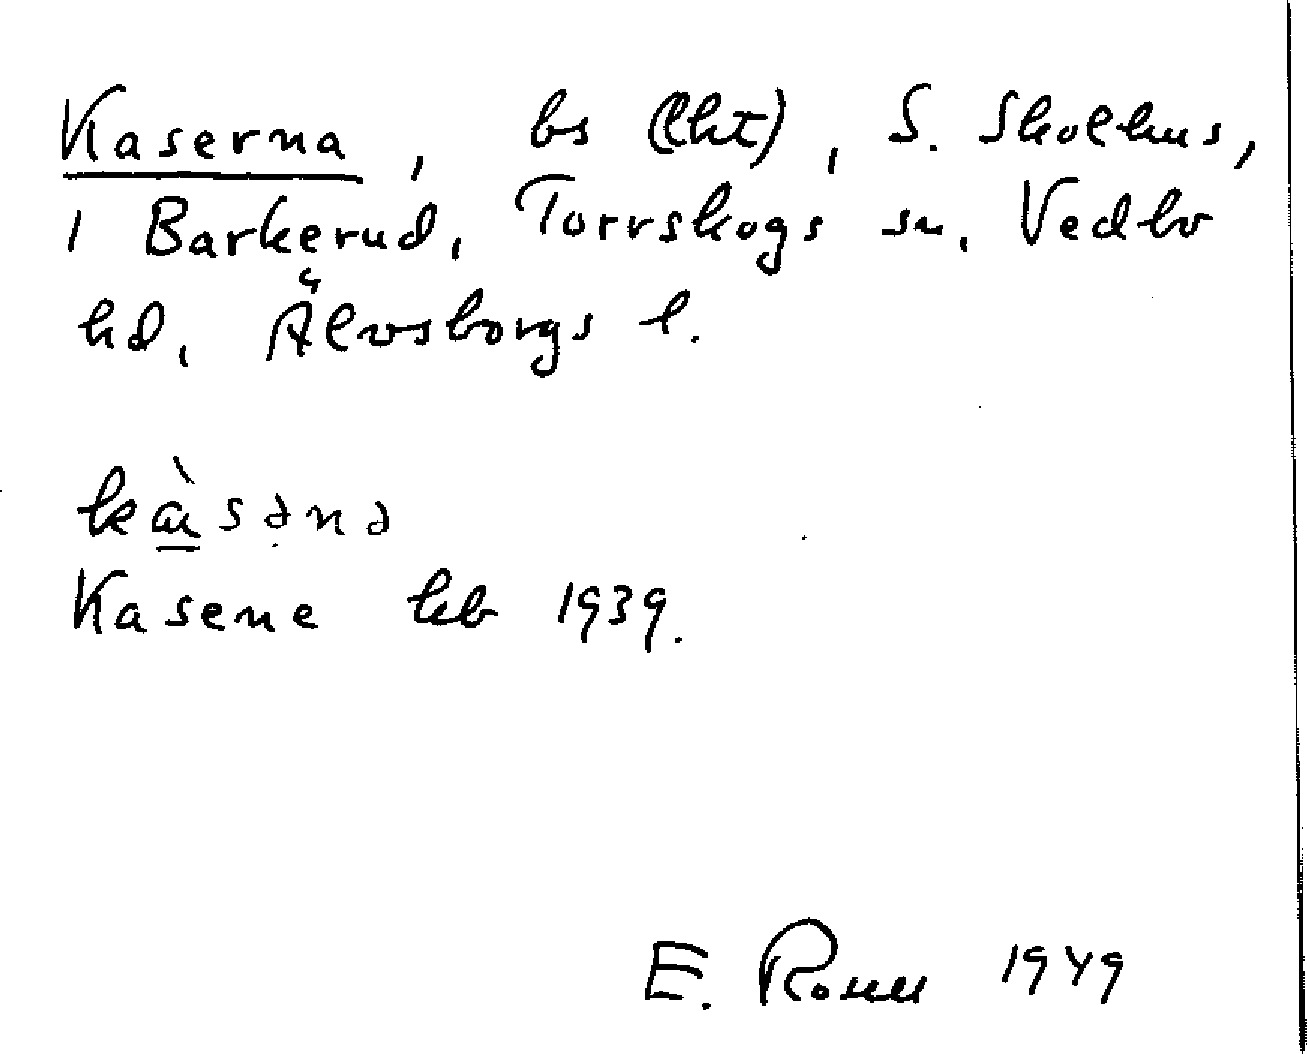 Kaserna, bs (lht), S. Skolhus,
1 Barkerud, Torrskogs sn, Vedbo
hd, Älvsborgs l.
kɑ̀sənə
Kasene kb 1939.
E. 1949